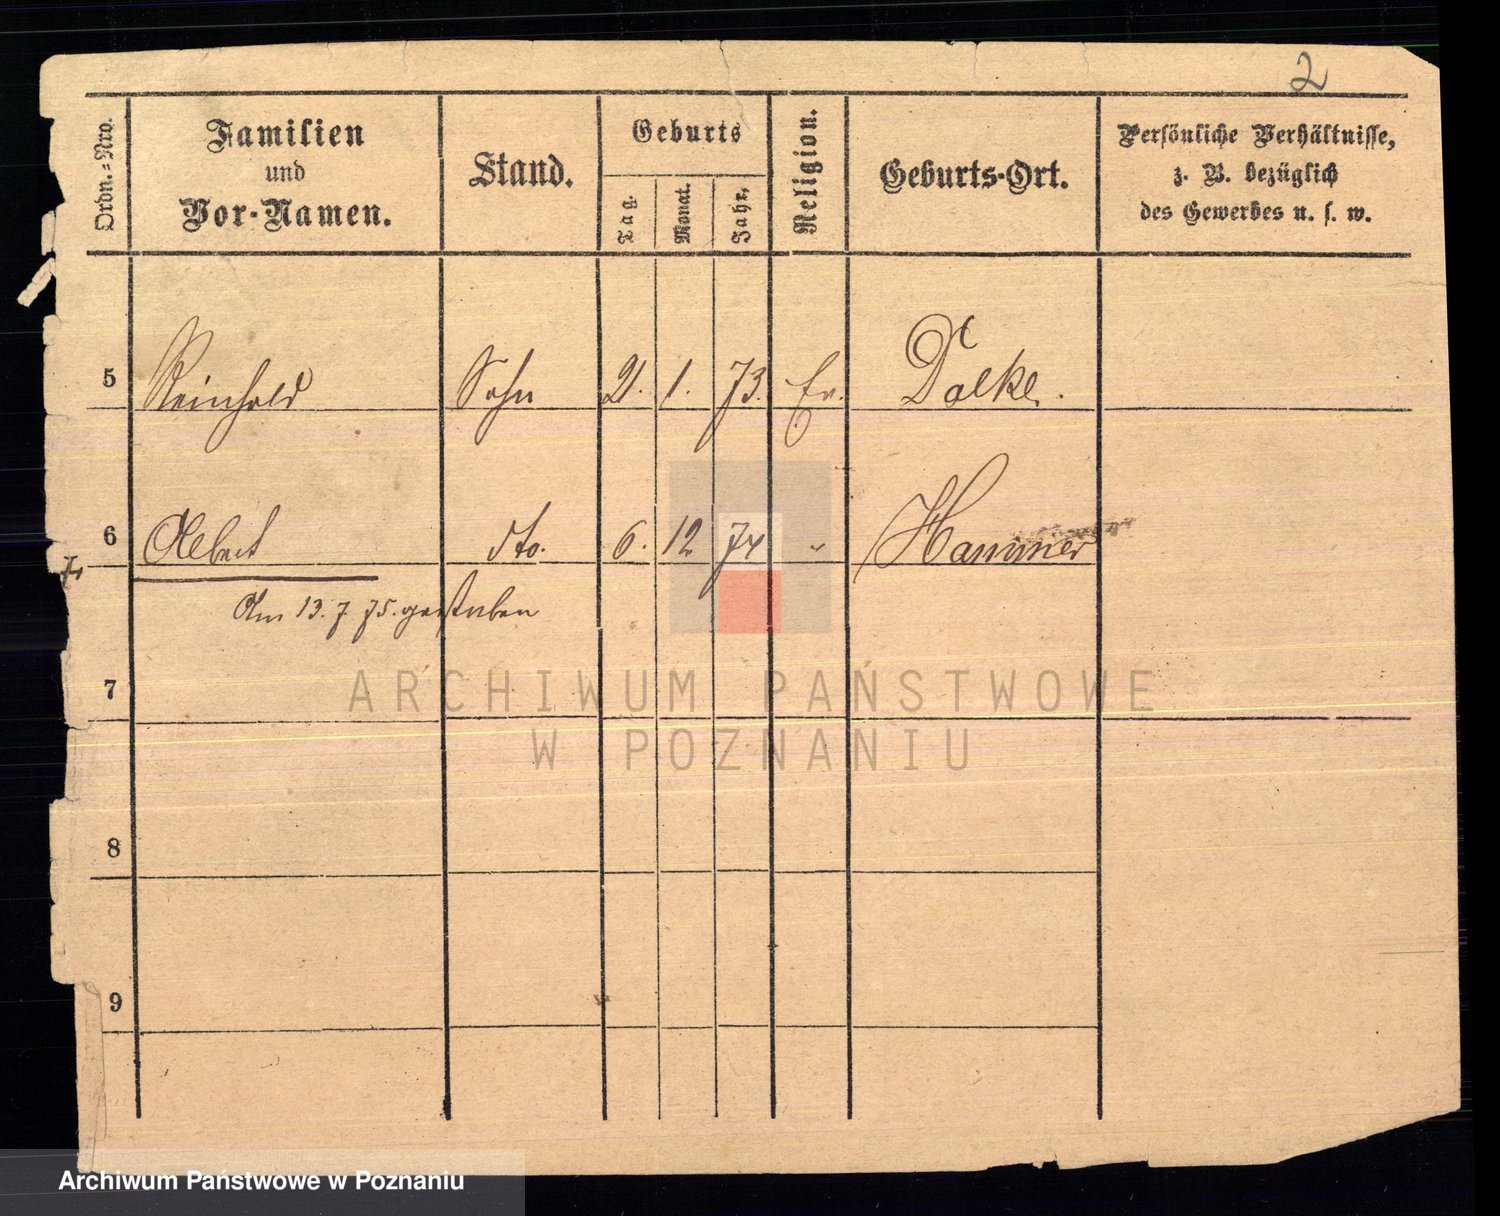 2
Ordn.-Nro.
Familien
und
Vor-Namen.
Stand.
Geburts
Tag.
Monat.
Jahr.
Religion.
Geburts-Ort.
Persönliche Verhältnisse,
z. B. bezüglich
des Gewerbes u. s. w.
5 Reinhold Sohn 21. 1. 73. Ev.
6 Albert dto. 6. 12 74 " Hammer
Am 13. 7 75. gestorben
7
8
9
ARCHIWUM PAŃSTWOWE
W POZNANIU
Archiwum Państwowe w Poznaniu